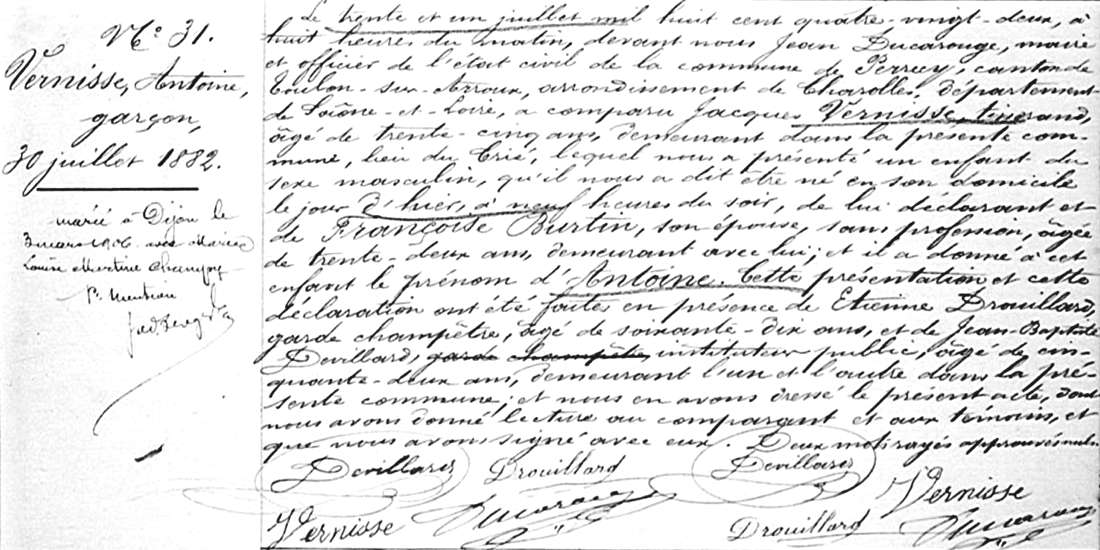 N° 31.
Vernisse, Antoine,
garçon,
30 juillet 1882.
marié à Dijon le
3 mars 1906 avec Marie
Louise
Pr Mention
Le trente et un juillet mil huit cent quatre-vingt-deux, à
huit heures du matin, devant nous Jean Ducarouge, maire
et officier de l'état civil de la commune de Perrecy, canton de
Toulon-sur-Arroux, arrondissement de Charolles, département
de Saône-et-Loire, a comparu Jacques Vernisse, tisserand,
âgé de trente-cinq ans, demeurant dans la présente com-
mune, lieu du Crié, lequel nous a présenté un enfant du
sexe masculin, qu'il nous a dit être né en son domicile
le jour d'hier, à neuf heures du soir, de lui déclarant et
de Françoise Burtin, son épouse, sans profession, âgée
de trente-deux ans, demeurant avec lui; et il a donné à cet
enfant le prénom d'Antoine. Cette présentation et cette
déclaration ont été faites en présence de Etienne Drouillard,
garde champêtre, âgé de soixante-dix ans, et de Jean-Baptiste
Devillard, garde champêtre, instituteur public, âgé de cin-
quante-deux ans, demeurant l'un et l'autre dans la pré-
sente commune; et nous en avons dressé le présent acte, dont
nous avons donné lecture au comparant et aux témoins, et
que nous avons signé avec eux. Deux mots rayés approuvés nuls.
Devillard Drouillard Devillard
Vernisse Ducarouge Drouillard Vernisse Ducarouge